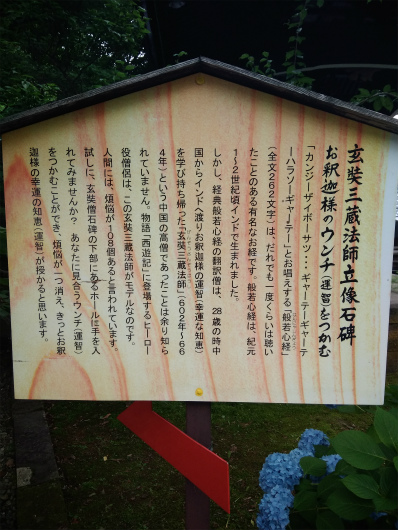 玄奘三蔵法師立像石碑
お釈迦様のウンチ(運智)をつかむ
「カンジーザイボーサツ・・・ギャーテーギャーテ
ーハラソーギャーテー」とお唱えする「般若心経」
(全文262文字)は、だれでも一度くらいは聴い
たことのある有名なお経です。般若心経は、紀元
1〜2世紀頃インドで生まれました。
しかし、経典般若心経の翻訳僧は、28歳の時中
国からインドへ渡りお釈迦様の運智(幸運な知恵)
を学び持ち帰った「玄奘三蔵法師」(602年〜66
4年)という中国の高僧であったことは余り知ら
れていません。物語「西遊記」に登場するヒーロー
役僧侶は、この玄奘三蔵法師がモデルなのです。
人間には、煩悩が108個あると言われています。
試しに、玄奘僧石碑の下部にあるホールに手を入
れてみませんか?あなたに見合うウンチ(運智)
をつかむことができ、煩悩が一つ消え、きっとお釈
迦様の幸運の知恵(運智)が授かると思います。